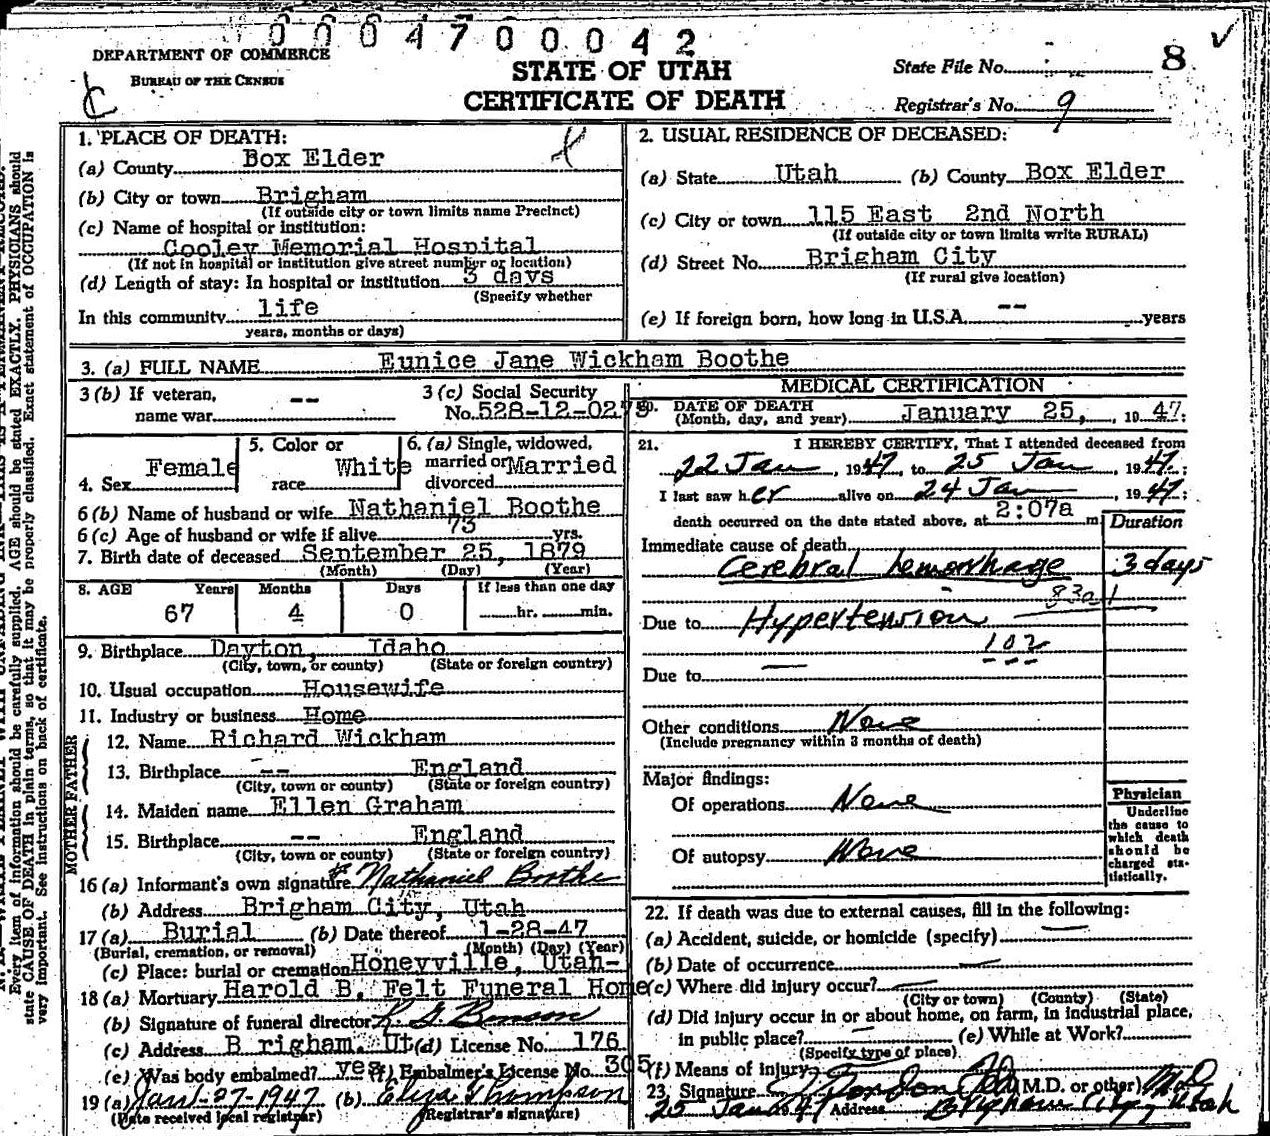 0004700042
DEPARTMENT OF COMMERCE
BUREAU OF THE CENSUS
STATE OF UTAH
CERTIFICATE OF DEATH
State File No. 8
Registrar's No. 9
1. PLACE OF DEATH:
(a) County Box Elder
(b) City or town Brigham
(If outside city or town limits name Precinct)
(c) Name of hospital or institution:
Cooley Memorial Hospital
(If not in hospital or institution give street number or location)
(d) Length of stay: In hospital or institution 3 days
(Specify whether
In this community life
years, months or days)
2. USUAL RESIDENCE OF DECEASED:
(a) State Utah (b) County Box Elder
(c) City or town 115 East 2nd North
(If outside city or town limits write RURAL)
(d) Street No. Brigham City
(If rural give location)
(e) If foreign born, how long in U.S.A. -- years
3. (a) FULL NAME Eunice Jane Wickham Boothe
3 (b) If veteran, name war --
3 (c) Social Security
No. 528-12-0278
4. Sex Female
5. Color or race White
6. (a) Single, widowed, married or divorced Married
6 (b) Name of husband or wife Nathaniel Boothe
6 (c) Age of husband or wife if alive 73 yrs.
7. Birth date of deceased September 25, 1879
(Month) (Day) (Year)
8. AGE Years Months Days If less than one day
67 4 0 hr. min.
9. Birthplace Dayton, Idaho
(City, town, or county) (State or foreign country)
10. Usual occupation Housewife
11. Industry or business Home
FATHER
12. Name Richard Wickham
13. Birthplace -- England
(City, town or county) (State or foreign country)
MOTHER
14. Maiden name Ellen Graham
15. Birthplace -- England
(City, town or county) (State or foreign country)
16 (a) Informant's own signature Nathaniel Boothe
(b) Address Brigham City, Utah
17 (a) Burial (b) Date thereof 1-28-47
(Burial, cremation, or removal) (Month) (Day) (Year)
(c) Place: burial or cremation Honeyville, Utah-
18 (a) Mortuary Harold B. Felt Funeral Home
(b) Signature of funeral director
(c) Address B righam, Ut (d) License No. 176
(e) Was body embalmed? yes (f) Embalmer's License No. 305
19 (a) Jan-27-1947 (b) Eliza Thompson
(Date received local registrar) (Registrar's signature)
MEDICAL CERTIFICATION
20. DATE OF DEATH
(Month, day, and year) January 25, 1947.
21. I HEREBY CERTIFY, That I attended deceased from
22 Jan, 1947, to 25 Jan, 1947;
I last saw her alive on 24 Jan, 1947;
death occurred on the date stated above, at 2:07a m
Duration
Immediate cause of death
Cerebral hemorrhage 3 days
Due to Hypertension
102
Due to
Other conditions None
(Include pregnancy within 3 months of death)
Major findings:
Of operations None
Of autopsy None
Physician
Underline the cause to which death should be charged statistically.
22. If death was due to external causes, fill in the following:
(a) Accident, suicide, or homicide (specify)
(b) Date of occurrence
(c) Where did injury occur?
(City or town) (County) (State)
(d) Did injury occur in or about home, on farm, in industrial place,
in public place? (e) While at Work?
(Specify type of place)
(f) Means of injury
23. Signature (M.D. or other) MD
25 Jan 1947 Address Brigham City, Utah
Every item of information should be carefully supplied. AGE should be stated EXACTLY. PHYSICIANS should
state CAUSE OF DEATH in plain terms, so that it may be properly classified. Exact statement of OCCUPATION is
very important. See instructions on back of certificate.